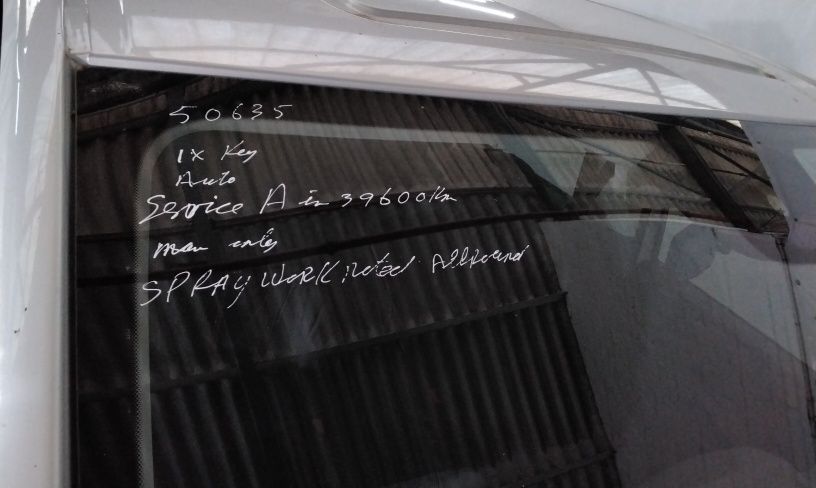 50635
1x Key
Auto
Service A in 39600Km
SPRAY WORK noted Allround